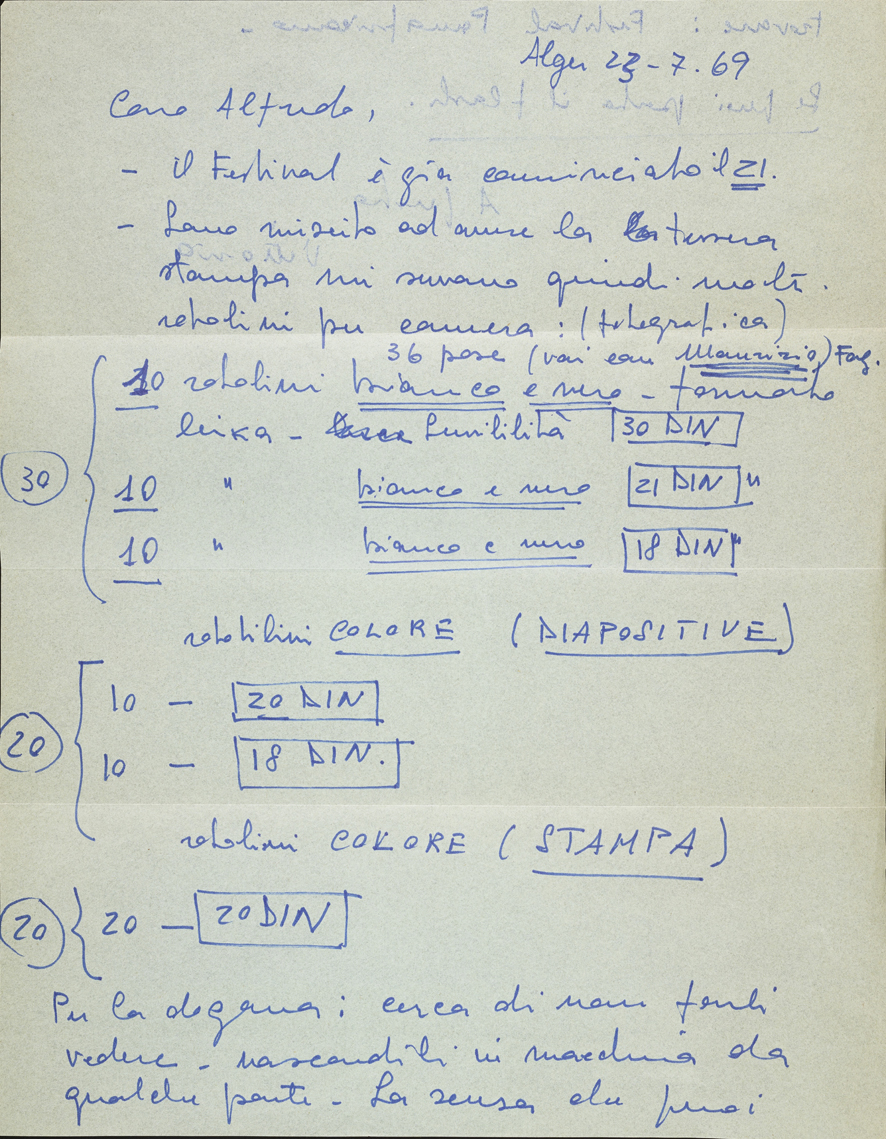 Alger 23-7.69
Caro Alfredo,
- il Festival è già cominciato il 21.
- Sono riuscito ad avere la tessera
stampa mi servono quindi molti
rotolini per camera: (fotografica)
36 pose (vai con Maurizio) Fag.
30 10 rotolini bianco e nero - formato
leika - Sensibilità 30 DIN
10 " bianco e nero 21 DIN "
10 " bianco e nero 18 DIN "
rotolini COLORE (DIAPOSITIVE)
20 10 - 20 DIN
10 - 18 DIN.
rotolini COLORE (STAMPA)
20 20 - 20 DIN
Per la dogana: cerca di non farli
vedere - nascondili in macchina da
qualche parte - La scusa che puoi